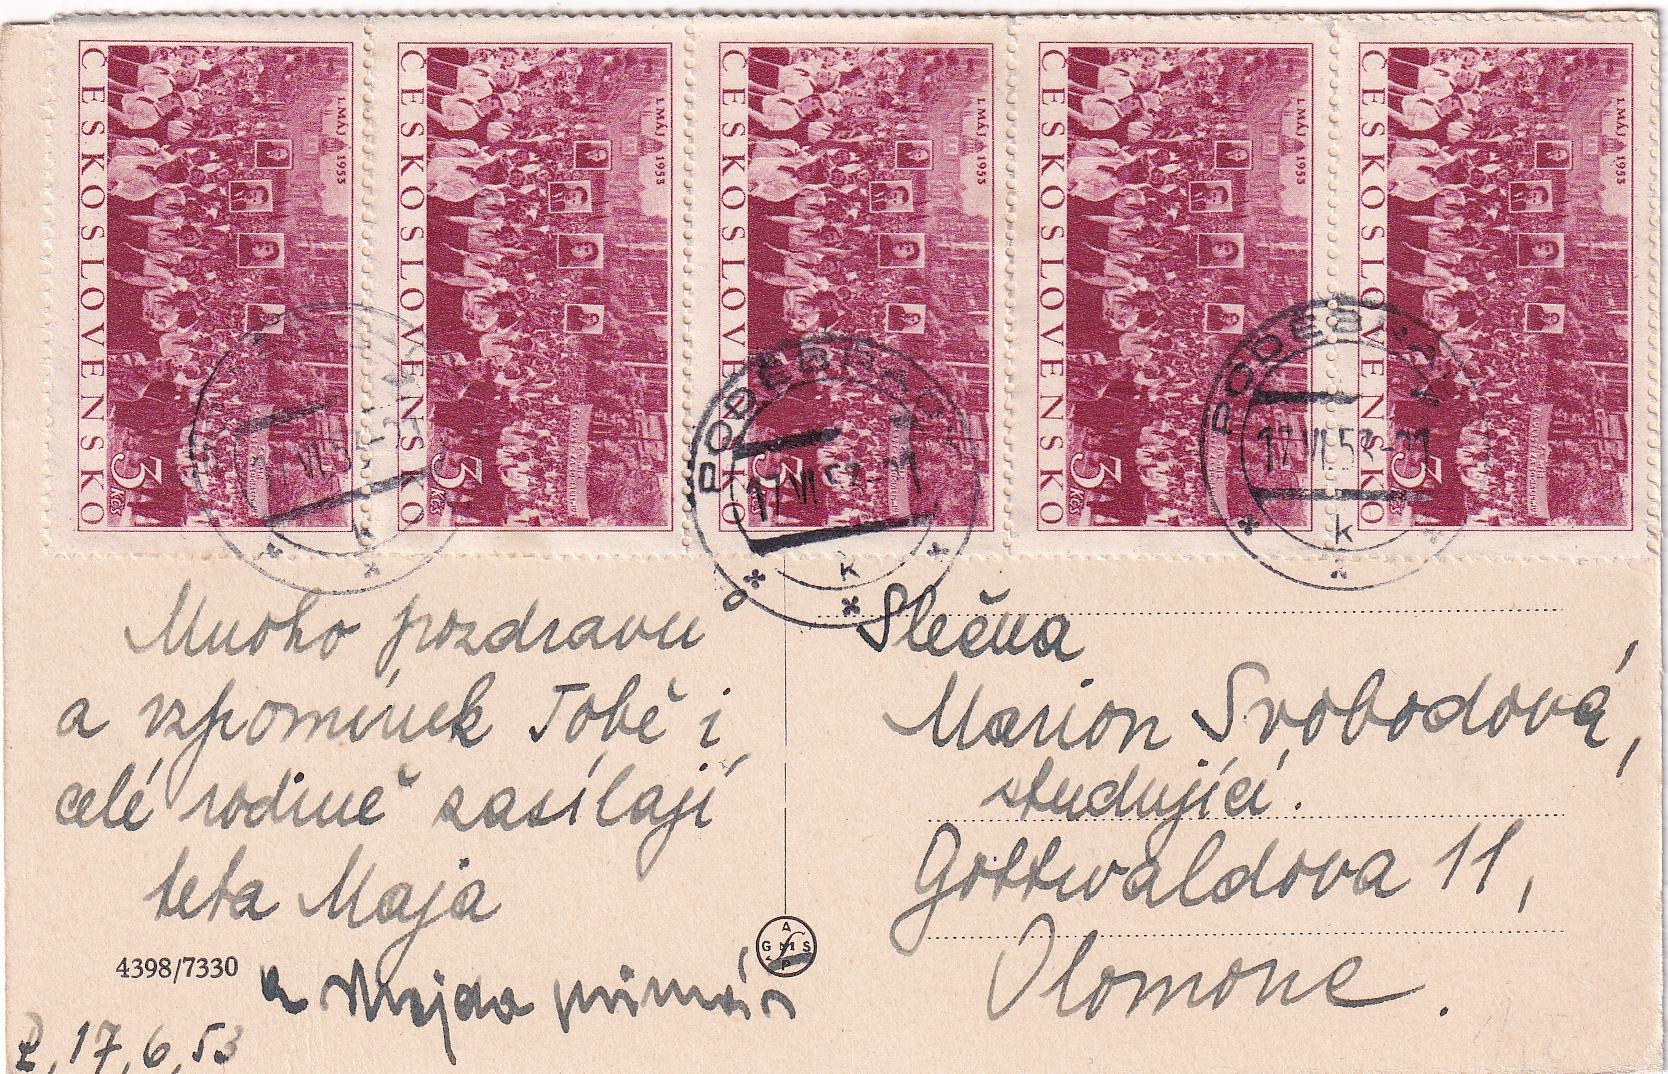 ČESKOSLOVENSKO
1. MÁJ 1953
3 Kčs
ČESKOSLOVENSKO
1. MÁJ 1953
3 Kčs
ČESKOSLOVENSKO
1. MÁJ 1953
3 Kčs
ČESKOSLOVENSKO
1. MÁJ 1953
3 Kčs
ČESKOSLOVENSKO
1. MÁJ 1953
3 Kčs
17 VI 53
k
PODĚBRADY
17 VI 53-21
k
PODĚBRADY
17 VI 53-21
k
Mnoho pozdravů
a vzpomínek Tobě i
celé rodině zasílají
teta Maja
a
4398/7330
P, 17, 6, 53
A
G M S
P
Slečna
Marion Svobodová,
studující.
Gottwaldova 11,
Olomouc.